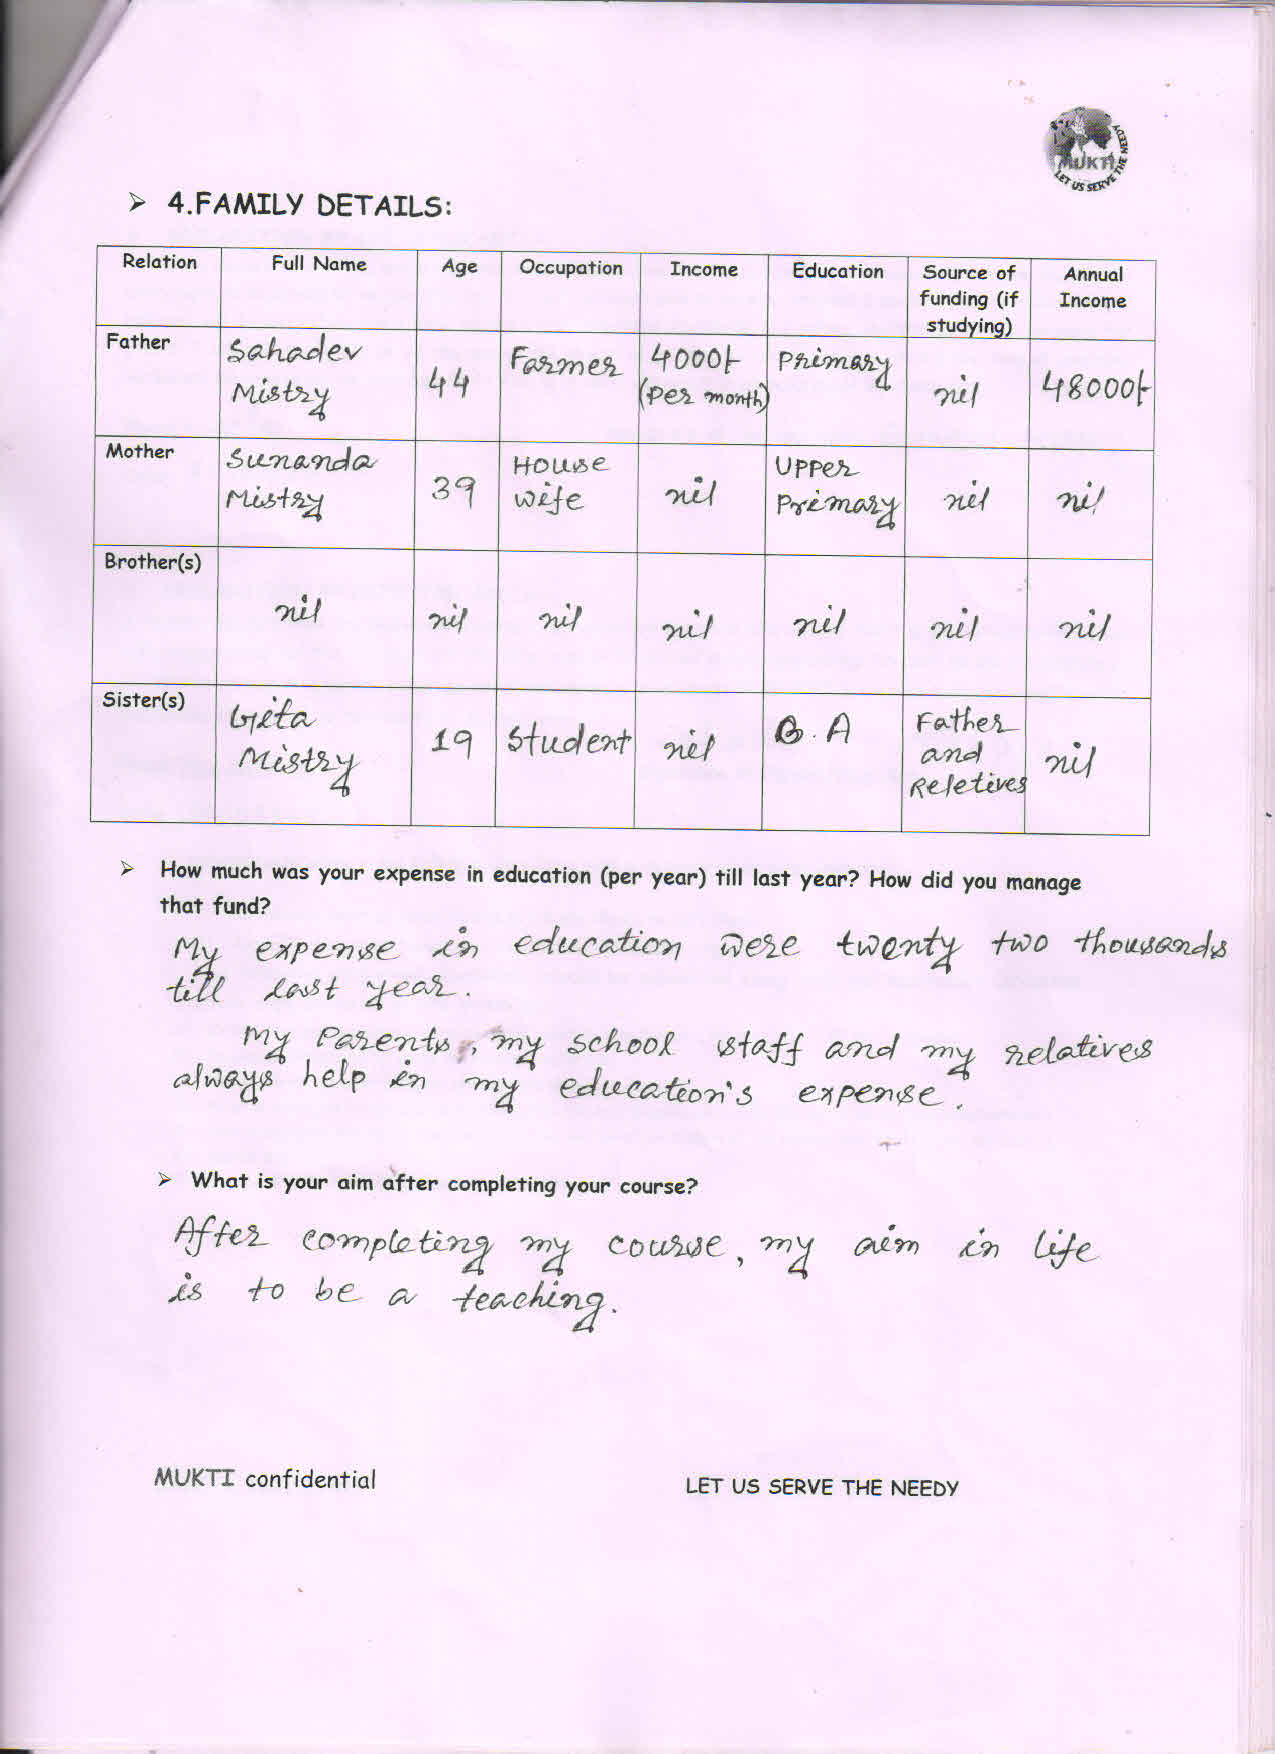 MUKTI
LET US SERVE THE NEEDY
➢ 4.FAMILY DETAILS:
Relation Full Name Age Occupation Income Education Source of funding (if studying) Annual Income
Father Sahadev Mistry 44 Farmer 4000/- (per month) Primary nil 48000/-
Mother Sunanda Mistry 39 House wife nil Upper Primary nil nil
Brother(s) nil nil nil nil nil nil nil
Sister(s) Gita Mistry 19 Student nil B.A Father and Reletives nil
➢ How much was your expense in education (per year) till last year? How did you manage
that fund?
My expense in education were twenty two thousands
till last year.
My Parents, my school staff and my relatives
always help in my education's expense.
➢ What is your aim after completing your course?
After completing my course, my aim in life
is to be a teaching.
MUKTI confidential LET US SERVE THE NEEDY